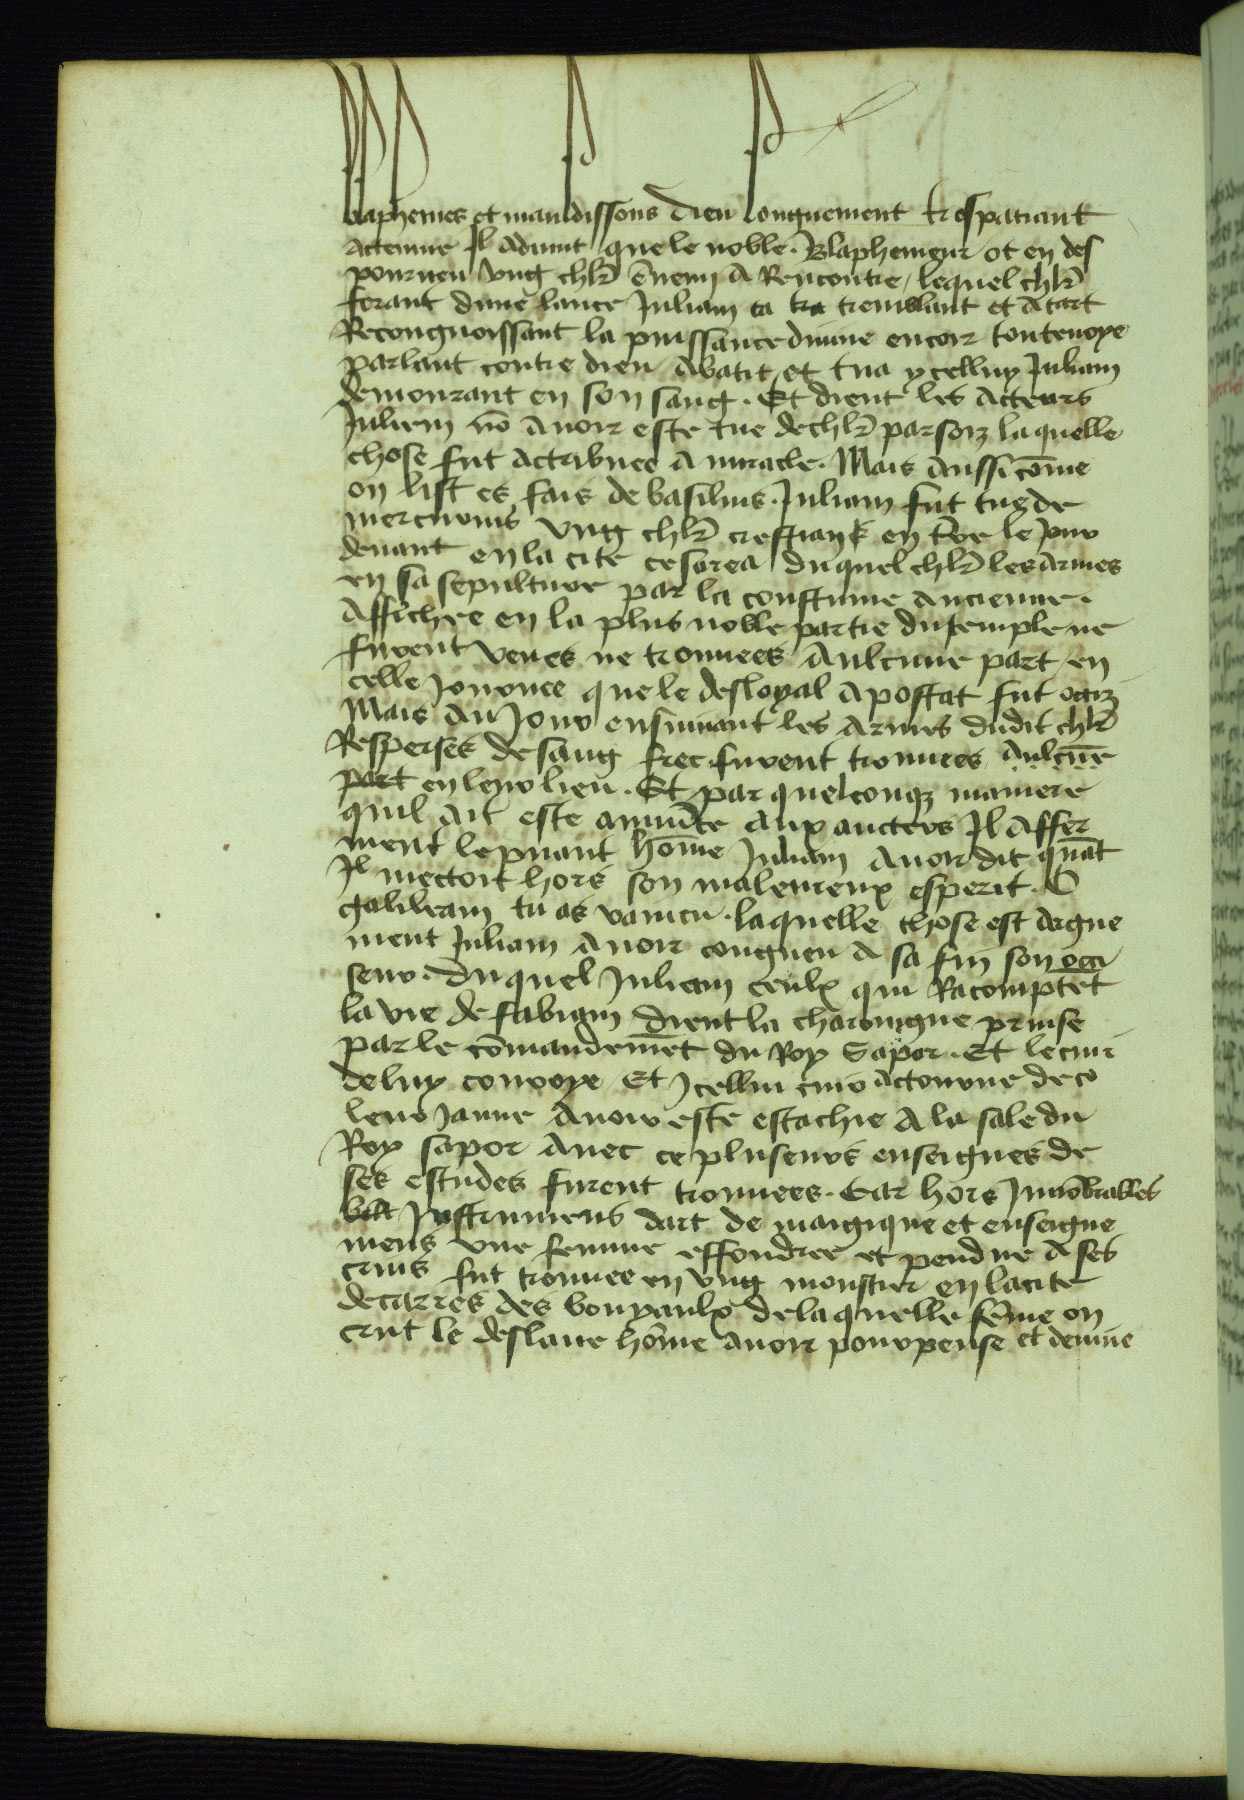 blaphemes et maudissons Dieu longuement trespatiant
Actenue Jl Aduint que le noble. Blaphemeur ot en des
pourueu vng chl̄r ēnemi A Rencontre, lequel chl̄r
ferant dune lance Juliam tremblant et A tart
Recongnoissant la puissance diuine encor toutenoye
parlant contre dieu Abatit, et tua ycelluy Juliam
demourant en son sang. Et dient les Acteurs
Juliem nō Auoir este tue de chl̄r par soy laquelle
chose fut Actribuee A miracle. Mais Aussi cōme
on list es fais de basilius. Juliam fut tue de
mercurius vng chl̄r crestian en terre le jour
deuant en la cite cesarea duquel chl̄r les Armes
en sa sepulture par la coustume ancienne.
Affichee en la plus noble partie du temple ne
furent venes ne trouuees Aulcune part en
celle Journee que le desloyal Apostat fut occiz
Mais Au Jour ensuiuant les Armes dudit chl̄r
Resperses de sang frec furent trouuees Aulcūe
part en leur lieu. Et par quelconqz maniere
quil Ait este aux aucters Jl Affer
ment le puant hōme Juliam Auoir dit quāt
Jl mectoit hors son maleureux esperit. O
galileam tu as vaincu. laquelle chose est digne
ment Juliam Auoir congneu A sa fin son occi
seur. Duquel Juliem ceulx qui Racomptēt
la vie de fabiam dient la charoingne prinse
par le cōmandemēt du Roy Sapor. Et le cuir
de luy conroye Et Jcellui cuir Actourne de co
leur Jaune Auoir este estachie A la sale du
Roy sapor Auec ce pluseurs enseignes de
ses estudes furent trouuees. Car hors Jnnōbrables
Jnstrumens dart de maigique et enseigne
mens vne femme effondree et pendue A ses
crins fut trouuee en vng monstier en la cite
de carres des bouyaulx de laquelle fēme on
crut le deslaue hōme auoir pourpense et deuine